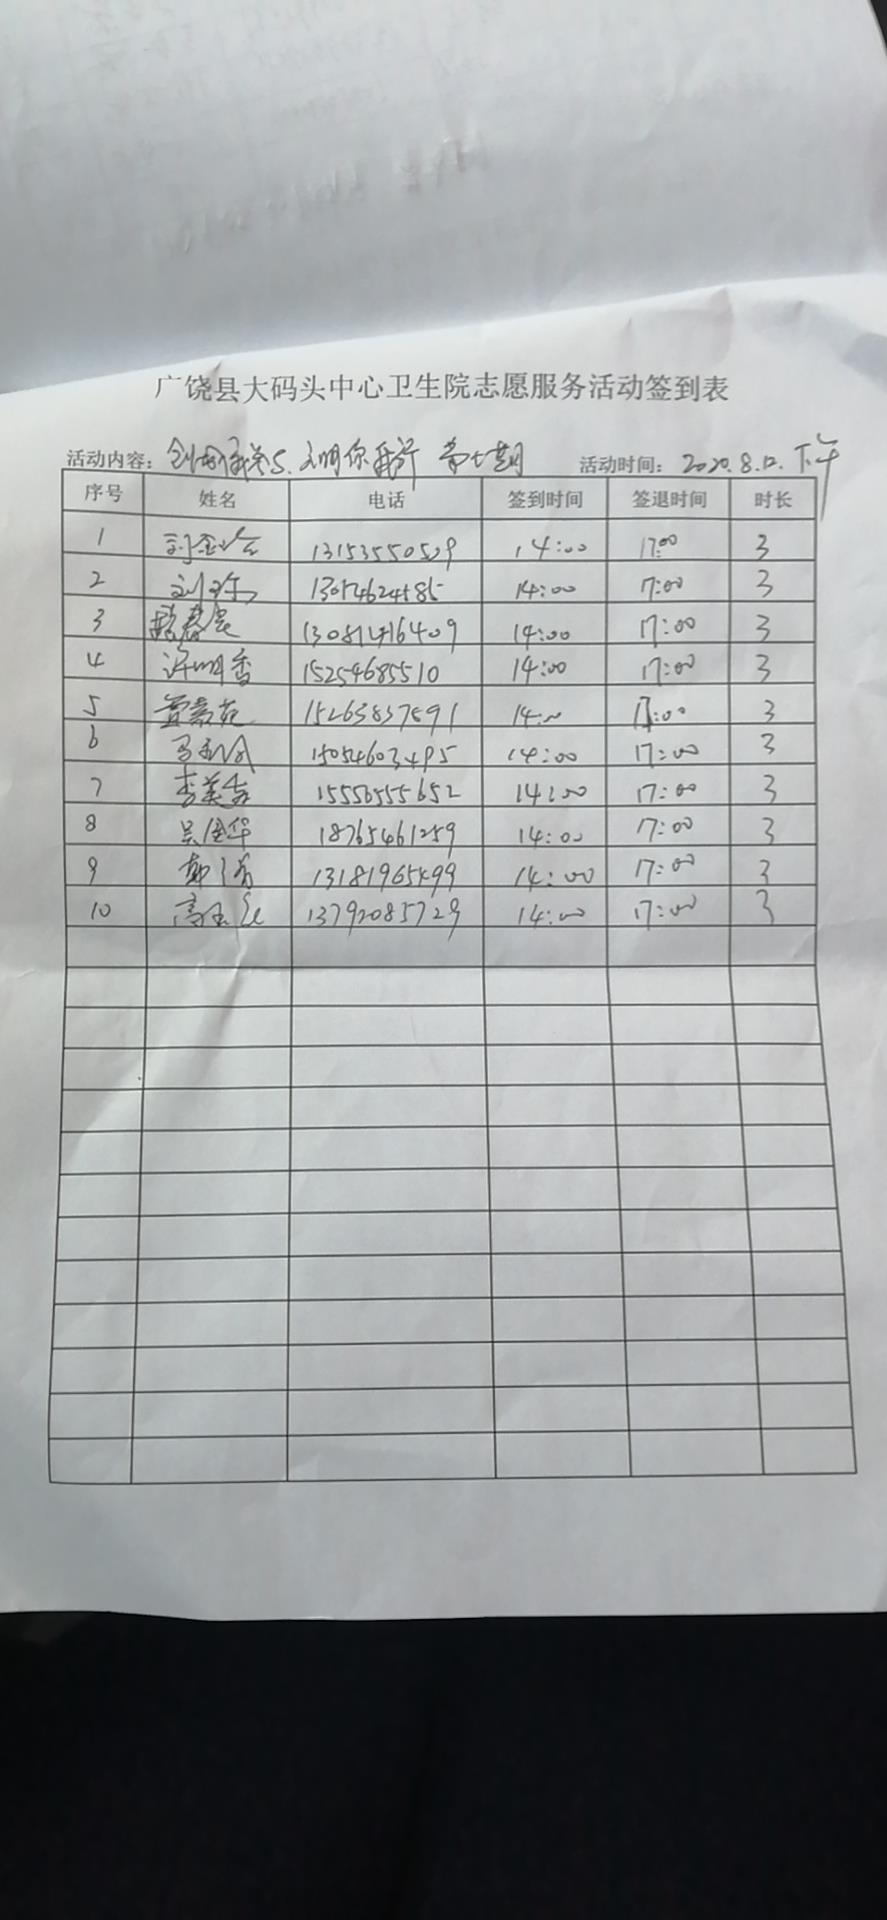 广饶县大码头中心卫生院志愿服务活动签到表
活动内容: 文明你我行 第七期 活动时间: 2020.8.12. 下午
序号 姓名 电话 签到时间 签退时间 时长
1 13153550529 14:00 17:00 3
2 刘珍 14:00 17:00 3
3 14:00 17:00 3
4 许明香 15254685510 14:00 17:00 3
5 贾嘉苑 15263837591 14:00 17:00 3
6 15054603495 14:00 17:00 3
7 李美芳 15556555652 14:00 17:00 3
8 吴国华 18765461259 14:00 17:00 3
9 13181965499 14:00 17:00 3
10 13792085729 14:00 17:00 3